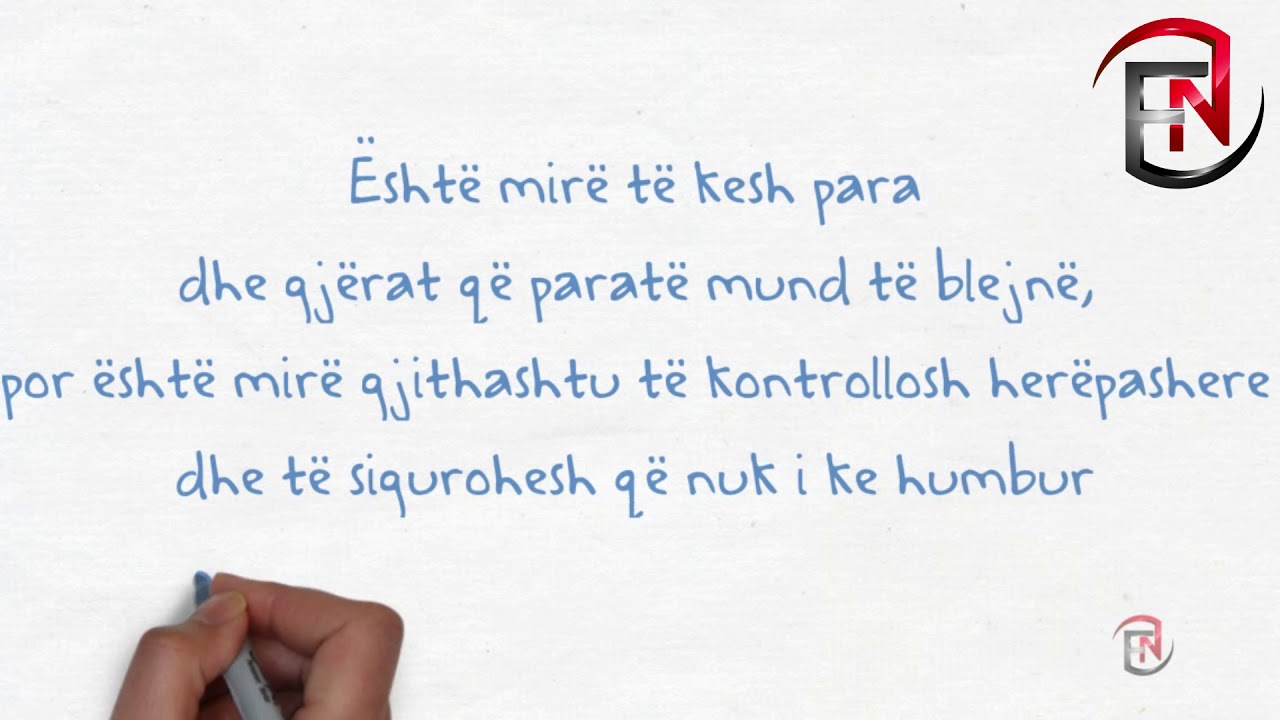 EN
Është mirë të kesh para
dhe gjërat që paratë mund të blejnë,
por është mirë gjithashtu të kontrollosh herëpashere
dhe të sigurohesh që nuk i ke humbur
EN